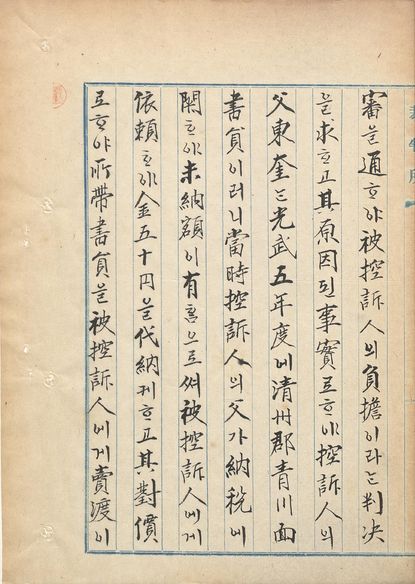 審을通ᄒᆞ야被控訴人의負擔이라ᄂᆞᆫ判决
을求ᄒᆞ고其原因된事實로ᄒᆞ야控訴人의
父東奎ᄂᆞᆫ光武五年度에清州郡青川面
書員이러니當時控訴人의父가納稅에
關ᄒᆞ야未納額이有홈으로써被控訴人에게
依賴ᄒᆞ야金五十円을代納케ᄒᆞ고其對價
로ᄒᆞ야所帶書員을被控訴人에게賣渡이